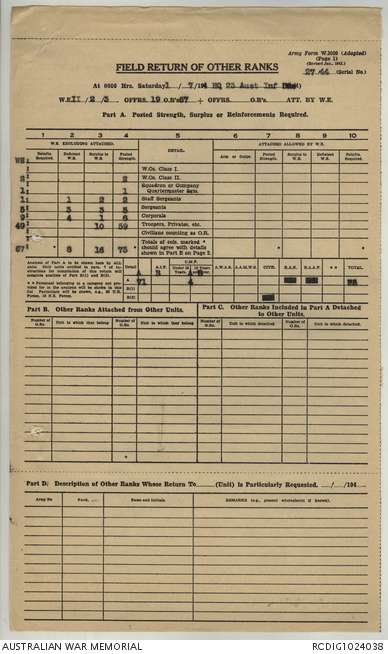 Army Form W.3009 (Adapted)
(Page 1)
(Revised Jan., 1943.)
FIELD RETURN OF OTHER RANKS
27.44 (Serial No.)
At 0600 Hrs. Saturday 1 / 7 /194 HQ 23 Aust Inf
W.E. II / 2 / 3 OFFRS. 19 O.R's 67 + OFFRS. O.R's. ATT. BY W.E.
Part A. Posted Strength, Surplus or Reinforcements Required.
1 2 3 4 5 6 7 8 9 10
W.E. EXCLUDING ATTACHED
ATTACHED ALLOWED BY W.E.
Reinfts. Required. Deficient W.E. Surplus to W.E. Posted Strength DETAIL. Arm or Corps. Posted Strength Surplus to W.E. Deficient W.E. Reinfts. Required.
WE:
W.Os. Class I.
2 2 W.Os. Class II.
1 1 Squadron or Company Quartermaster Sgts.
1 1 2 2 Staff Sergeants
5 3 3 5 Sergeants
9 4 1 6 Corporals
49 10 59 Troopers, Privates, etc.
Civilians counting as O.R.
67 8 16 75 Totals of cols. marked * should agree with details shown in Part B on Page 2.
Detail A.I.F. C.M.F. A.W.A.S. A.A.M.W.S. CIVS. R.A.N. R.A.A.F. * * TOTAL.
A 71 4 75
B(1)
B(2)
Part B. Other Ranks Attached from Other Units.
Part C. Other Ranks Included in Part A Detached to Other Units.
Number of O.Rs. Unit to which they belong Number of O.Rs. Unit to which they belong Number of O.Rs. Unit to which detached. Number of O.Rs. Unit to which detached.
Part D: Description of Other Ranks Whose Return To (Unit) is Particularly Requested. / /194
Army No Rank. Name and Initials. REMARKS (e.g., present whereabouts if known).
AUSTRALIAN WAR MEMORIAL
RCDIG1024038